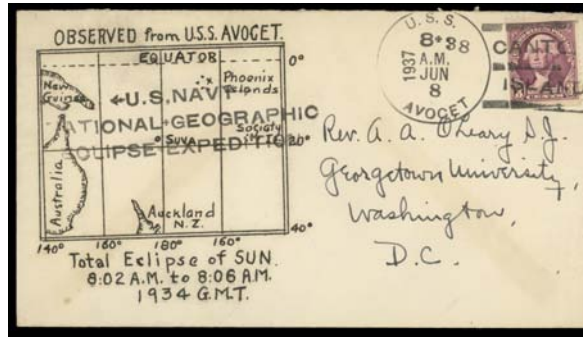 OBSERVED from U.S.S. AVOCET.
EQUATOR
0°
New Guinea
Phoenix Islands
←U.S. NAVY
NATIONAL GEOGRAPHIC
ECLIPSE EXPEDITION
Society
SUVA
20°
Australia
Auckland
N.Z.
40°
140° 160° 180° 160°
Total Eclipse of SUN.
8:02 A.M. to 8:06 A.M.
1934 G.M.T.
U.S.S.
8+38
A.M.
JUN
8
1937
AVOCET
CANTON
ISLAND
Rev. A. A. O'Leary S.J.
Georgetown University,
Washington,
D.C.